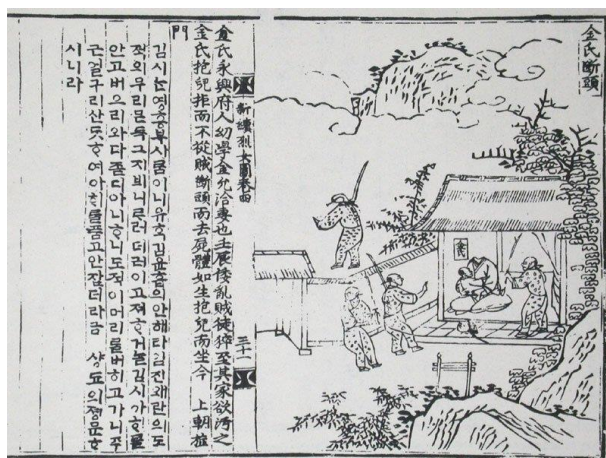 金氏断頭
新續烈女圖卷四
三十一
金氏永興府人幼學金允洽妻也壬辰倭亂賊徒猝至其家欲汚之
金氏抱兒拒而不從賊斷頭而去屍體如生抱兒而坐今 上朝旌
門
김시ᄂᆞᆫ영흥부사ᄅᆞᆷ이니유ᄒᆞᆨ김윤흡의안해라임진왜란의도
적의무리믄득그지븨니르러더러이고져ᄒᆞ거ᄂᆞᆯ김시아ᄒᆡᄅᆞᆯ
안고버으리와다졷디아니ᄒᆞ니도적이머리ᄅᆞᆯ버히고가니주
근얼구리산ᄃᆞᆺᄒᆞ여아ᄒᆡᄅᆞᆯ품고안잣더라금 샹됴의졍문ᄒᆞ
시니라